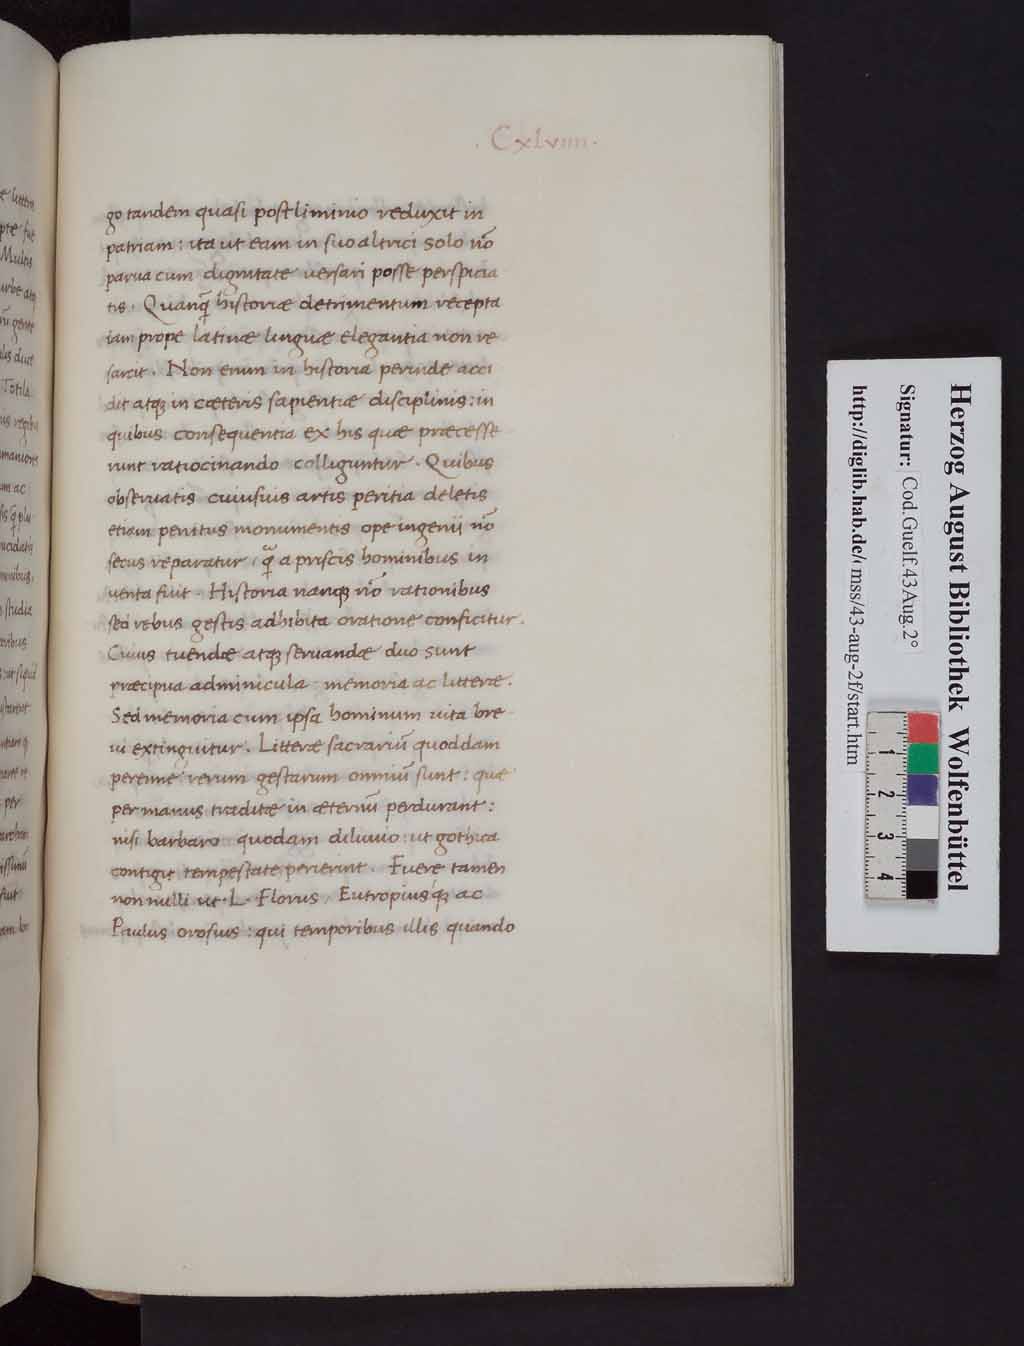 . CxLvıııı .
go tandem quasi postliminio reduxit in
patriam : ita ut eam in suo altrici solo nō
parua cum dignitate uersari posse perspicia
tis . Quanq̄ historiæ detrimentum recepta
iam prope latinæ linguæ elegantia non re
sarcit . Non enim in historia perinde acci
dit atqꝫ in cæteris sapientiæ disciplinis : in
quibus consequentia ex his quæ præcesse
runt ratiocinando colliguntur . Quibus
obseruatis cuiusuis artis peritia deletis
etiam penitus monumentis ope ingenii nō
secus reparatur , q̄ a priscis hominibus in
uenta fuit . Historia nanqꝫ nō rationibus
sed rebus gestis adhibita oratione conficitur .
Cuius tuendæ atqꝫ seruandæ duo sunt
præcipua adminicula memoria ac litteræ .
Sed memoria cum ipsa hominum uita bre
ui extinguitur . Litteræ sacrariū quoddam
perenne rerum gestarum omniū sunt : quæ
per manus traditæ in æternū perdurant :
nisi barbaro quodam diluuio ut gothica
contigit tempestate perierint . Fuere tamen
non nulli ut . L . Florus , Eutropiusqꝫ ac
Paulus orosius : qui temporibus illis quando
Herzog August Bibliothek Wolfenbüttel
Signatur: Cod.Guelf.43 Aug.2°
http://diglib.hab.de/ mss/43-aug-2f/start.htm
1
2
3
4